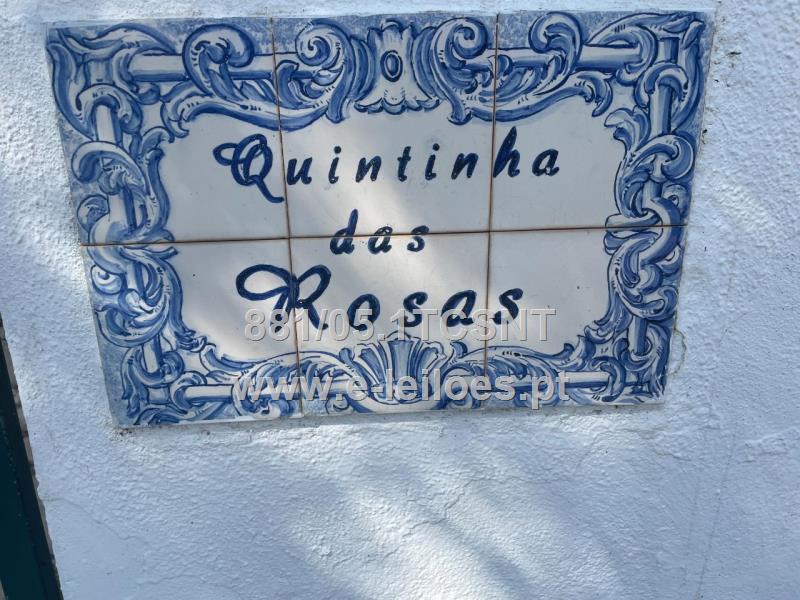 Quintinha
das
Rosas
881/05.1TCSNT
www.e-leiloes.pt